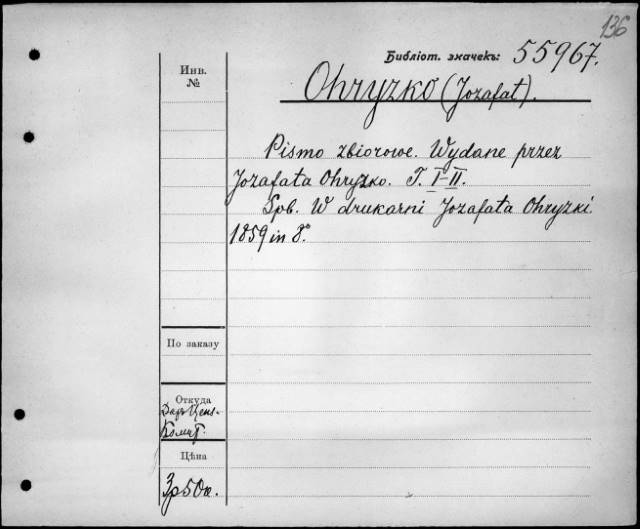 136
Библіот. значекъ: 55967.
Инв.
№
Ohryzko (Jozafat).
Pismo zbiorowe. Wydane przez
Jozafata Ohryzko. T. I-II.
Spb. W drukarni Jozafata Ohryzki.
1859 in 8°.
По заказу
Откуда
Даръ Ценз.
Комит.
Цѣна
3р50к.